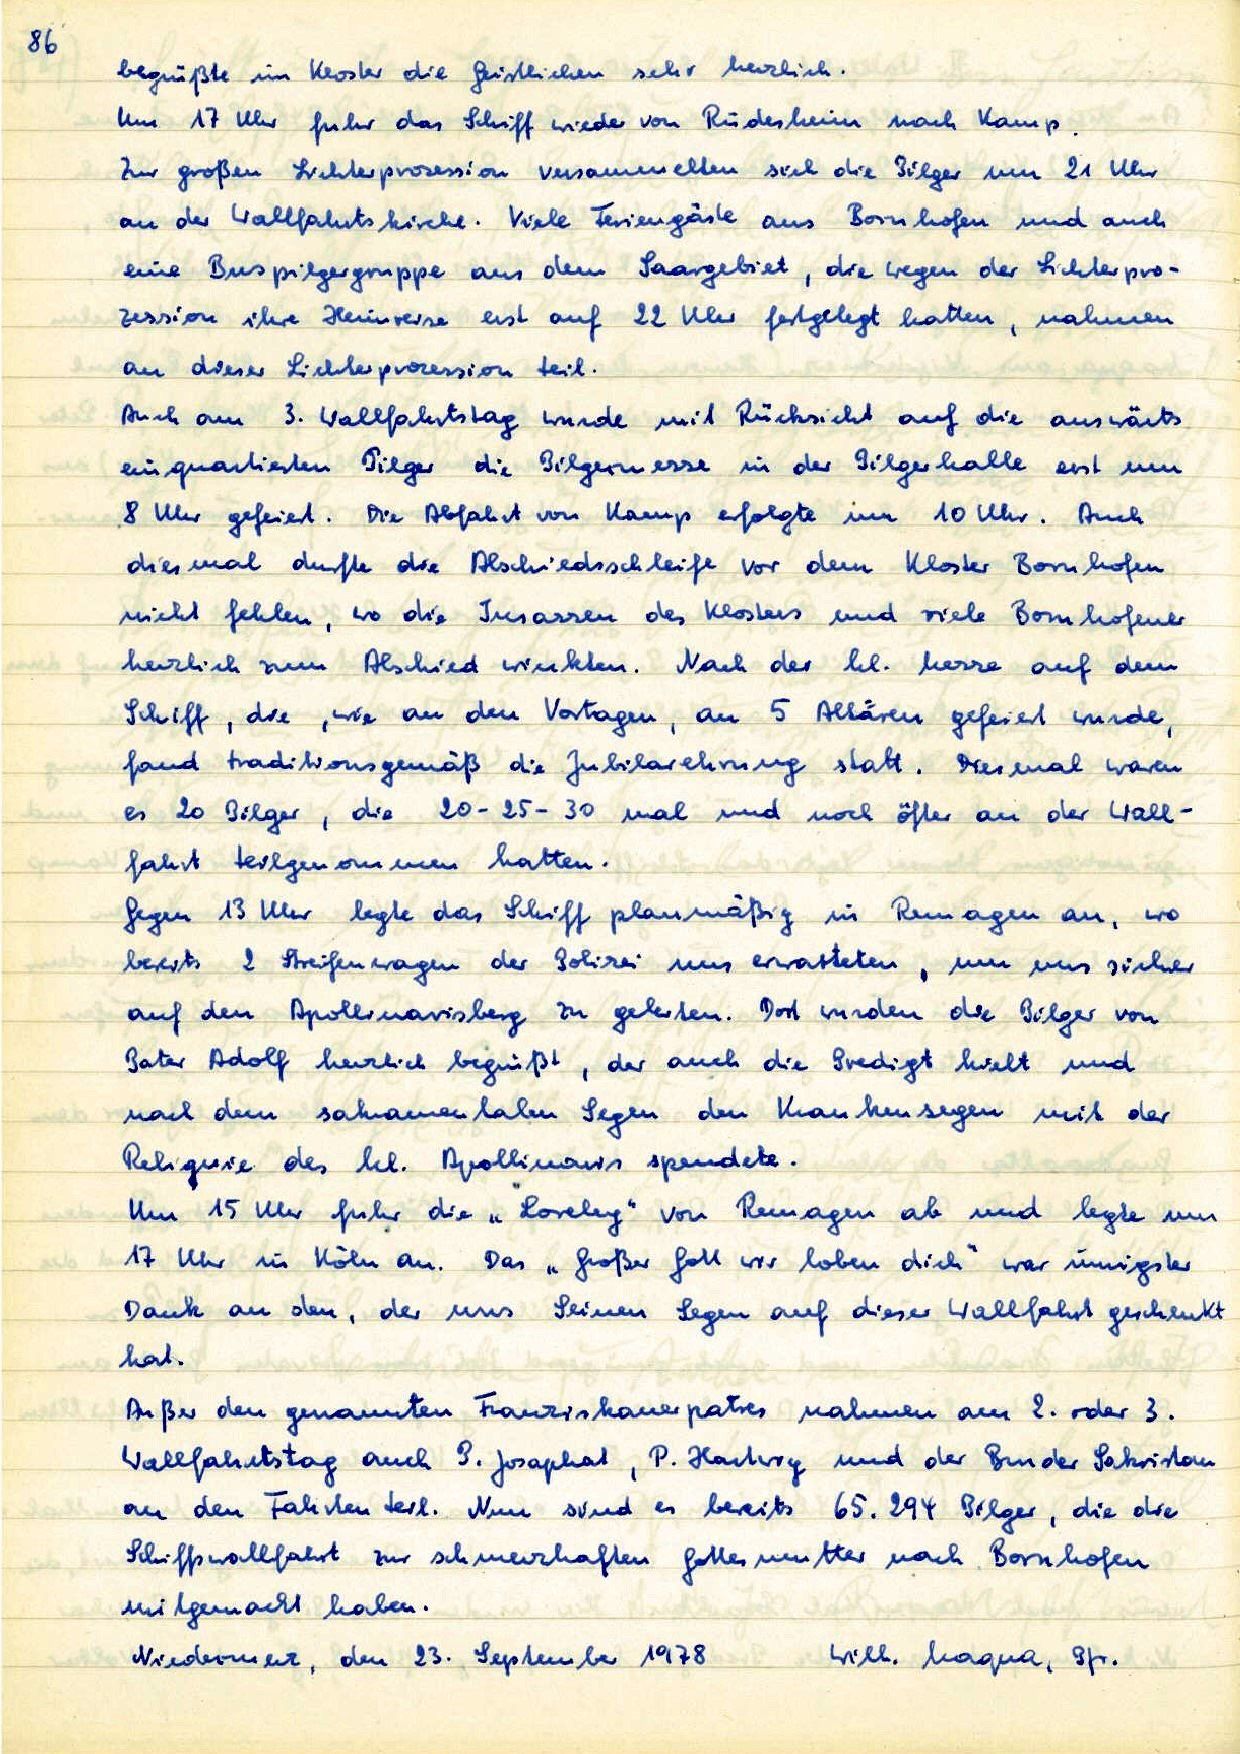 86
begrüßte im Kloster die Geistlichen sehr herzlich.
Um 17 Uhr fuhr das Schiff wieder von Rüdesheim nach Kamp.
Zur großen Lichterprozession versammelten sich die Pilger um 21 Uhr
an der Wallfahrtskirche. Viele Feriengäste aus Bornhofen und auch
eine Buspilgergruppe aus dem Saargebiet, die wegen der Lichterpro-
zession ihre Heimreise erst auf 22 Uhr festgelegt hatten, nahmen
an dieser Lichterprozession teil.
Auch am 3. Wallfahrtstag wurde mit Rücksicht auf die auswärts
einquartierten Pilger die Pilgermesse in der Pilgerhalle erst um
8 Uhr gefeiert. Die Abfahrt von Kamp erfolgte um 10 Uhr. Auch
diesmal durfte die Abschiedsschleife vor dem Kloster Bornhofen
nicht fehlen, wo die Insassen des Klosters und viele Bornhofener
herzlich zum Abschied winkten. Nach der hl. Messe auf dem
Schiff, die, wie an den Vortagen, an 5 Altären gefeiert wurde,
fand traditionsgemäß die Jubilarehrung statt. Diesmal waren
es 20 Pilger, die 20-25-30 mal und noch öfter an der Wall-
fahrt teilgenommen hatten.
Gegen 13 Uhr legte das Schiff planmäßig in Remagen an, wo
bereits 2 Streifenwagen der Polizei uns erwarteten, um uns sicher
auf den Apollinarisberg zu geleiten. Dort wurden die Pilger von
Pater Adolf herzlich begrüßt, der auch die Predigt hielt und
nach dem sakramentalen Segen den Krankensegen mit der
Reliquie des hl. Apollinaris spendete.
Um 15 Uhr fuhr die „Loreley" von Remagen ab und legte um
17 Uhr in Köln an. Das „Großer Gott wir loben dich" war innigster
Dank an den, der uns Seinen Segen auf dieser Wallfahrt geschenkt
hat.
Außer den genannten Franziskanerpatres nahmen am 2. oder 3.
Wallfahrtstag auch P. Josaphat, P. Hartwig und der Bruder Sakristan
an den Fahrten teil. Nun sind es bereits 65.294 Pilger, die die
Schiffswallfahrt zur schmerzhaften Gottesmutter nach Bornhofen
mitgemacht haben.
Niedermerz, den 23. September 1978 Wilh. Maqua, Pfr.